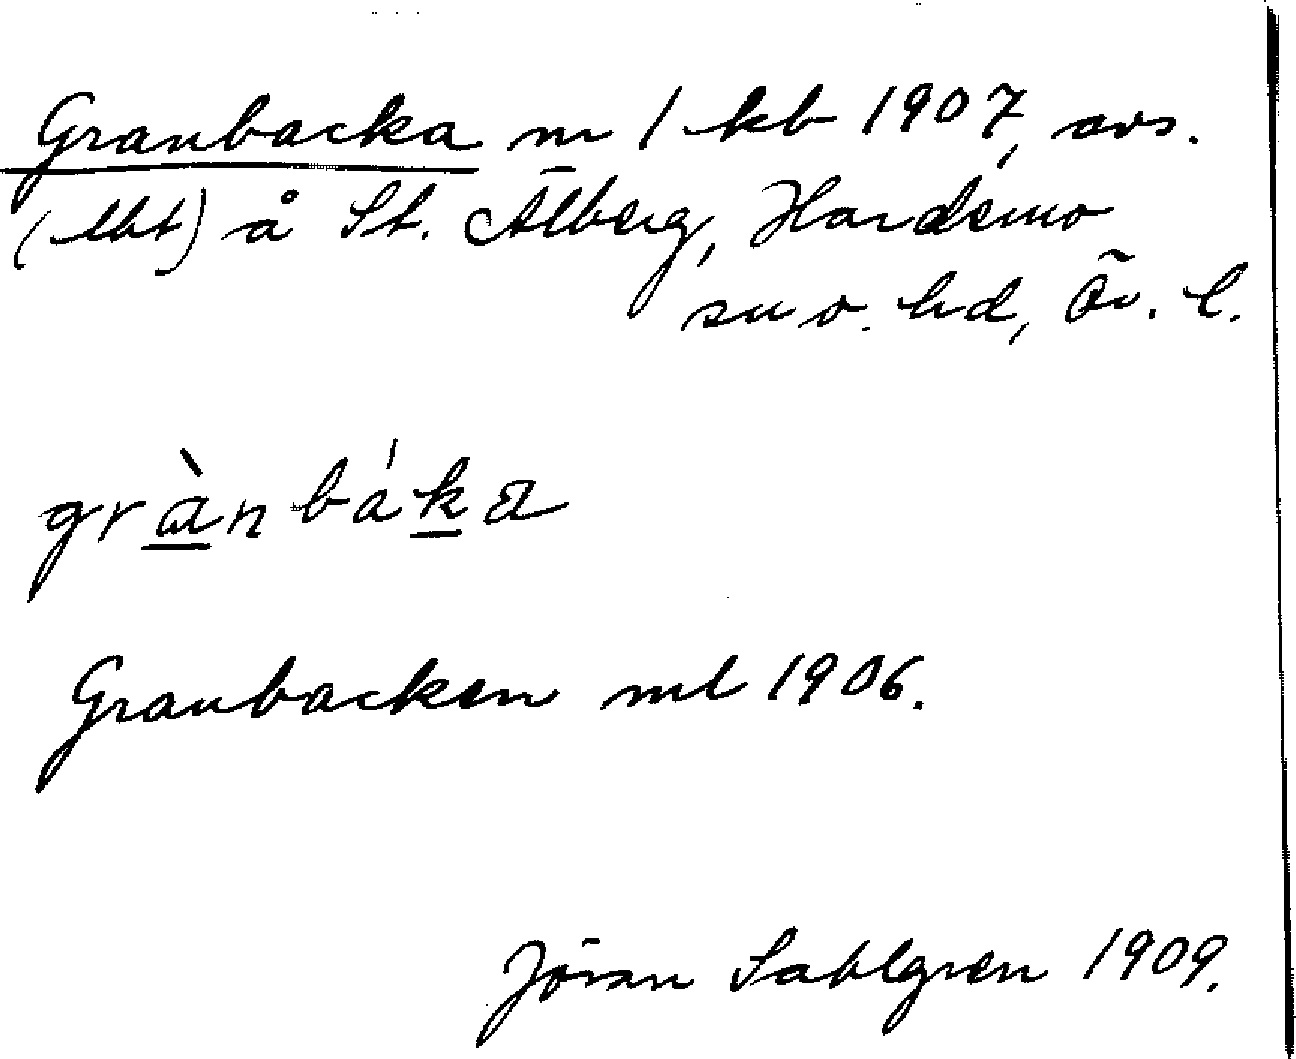 Granbacka m 1 kb 1907, avs.
(lht) å St. Älberg, Hardemo
sn o. hd, Ör. l.
grànbáka
Granbacken ml 1906.
Jöran Sahlgren 1909.